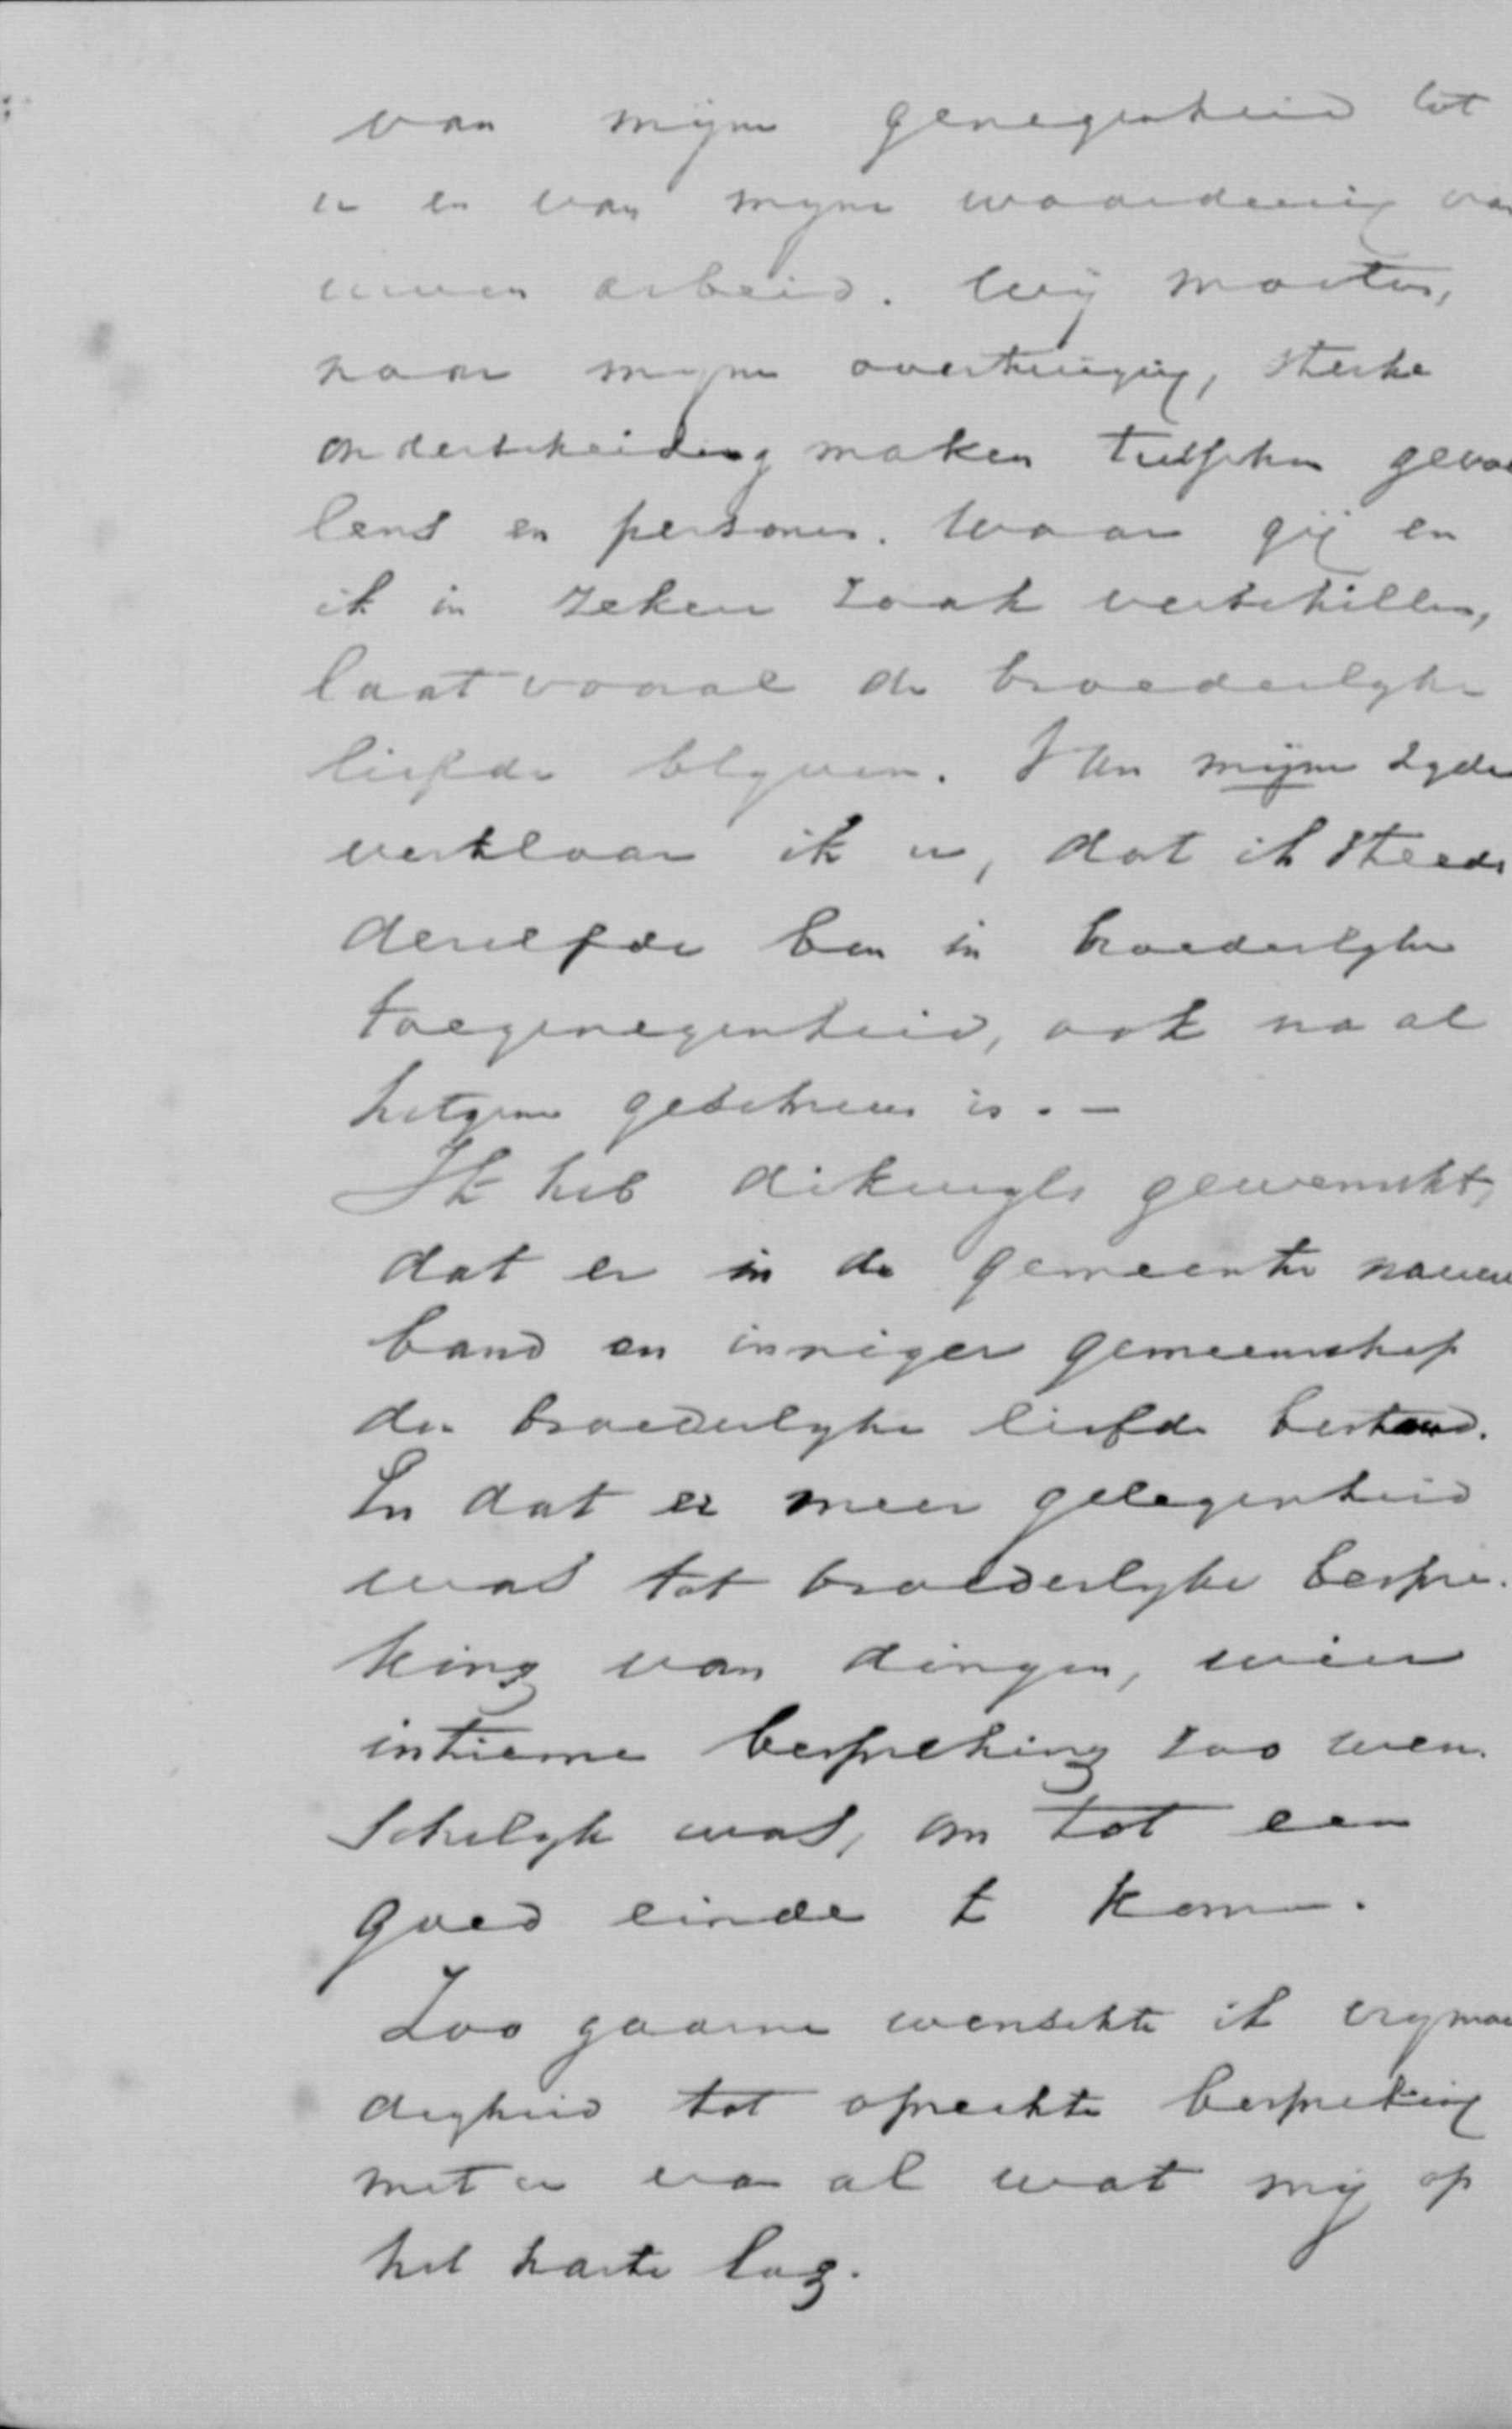 van mijne genegenheid tot
u en van mijne waardeering van
uwen arbeid. Wij moeten,
naar mijne overtuiging, sterke
onderscheiding maken tusschen gevoe
lens en personen. Waar gij en
ik in zekere zaak verschillen,
laat vooral de broederlyke
liefde blyven. Van mijne zyde
verklaar ik u, dat ik steeds
dezelfde ben in broederlyke
toegenegenheid, ook na al
hetgene geschreven is. -
Ik heb dikwyls gewenscht,
dat er in de gemeente nauwe
band en inniger gemeenschap
der broederlyke liefde bestond.
En dat er meer gelegenheid
was tot broederlyke bespre-
king van dingen, wier
intieme bespreking zoo wen-
schelyk was, om tot een
goed einde te komen.
Zoo gaarne wenschte ik vrymoe
digheid tot oprechte bespreking
met u van al wat mij op
het harte lag.